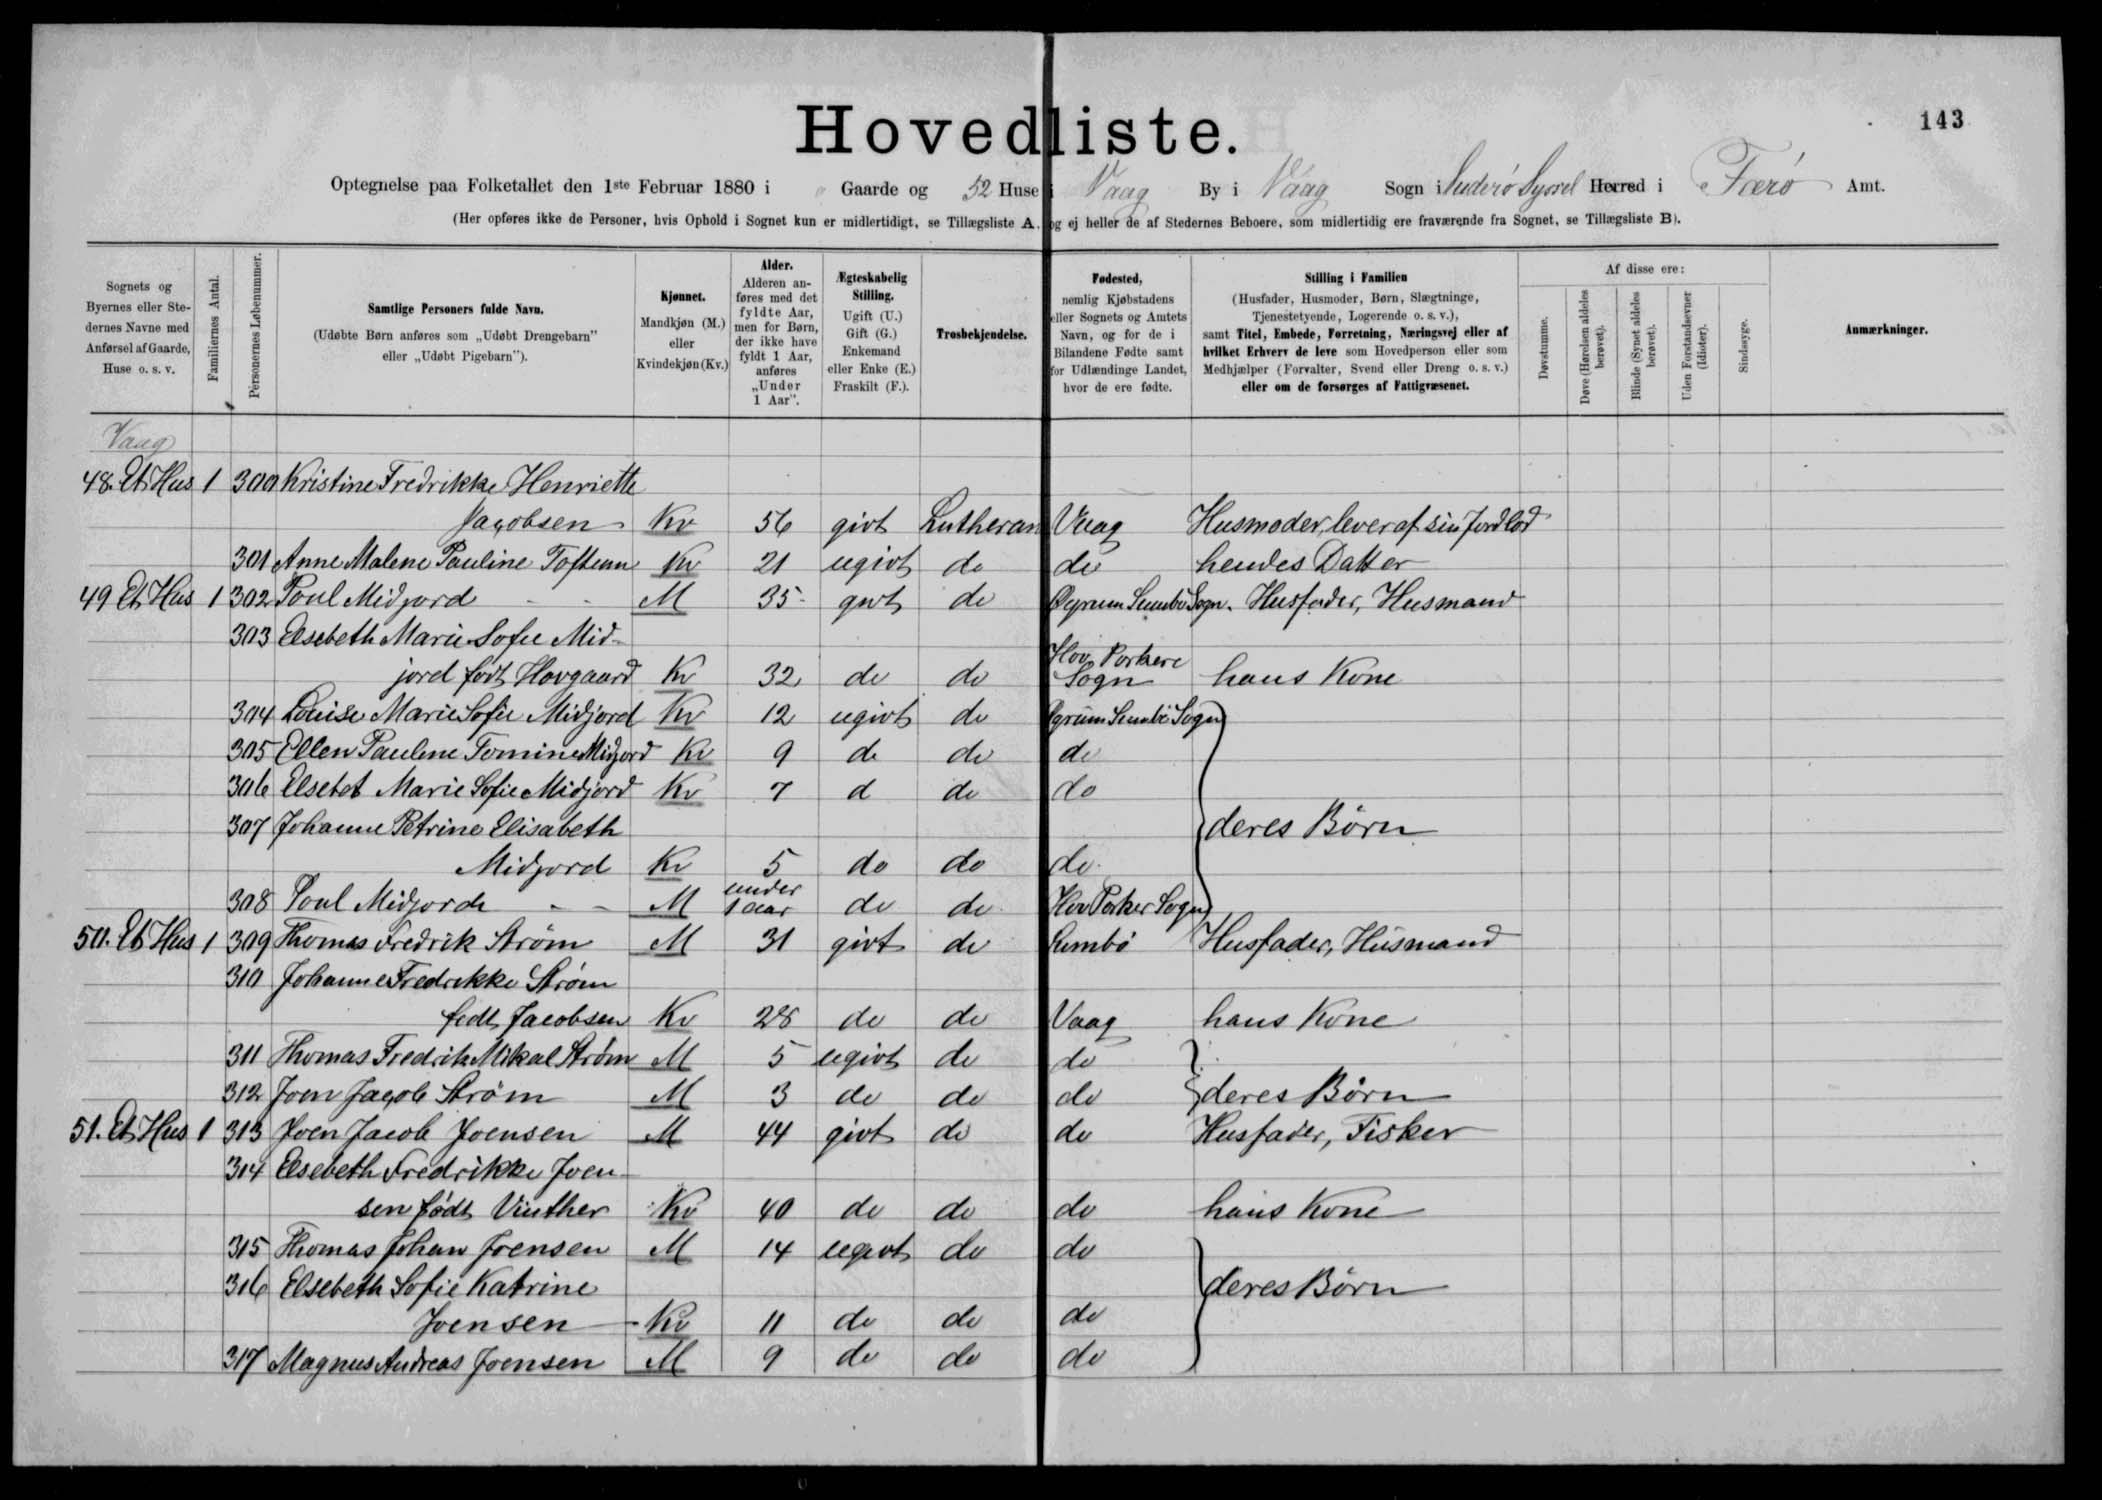 143
Hovedliste.
Optegnelse paa Folketallet den 1ste Februar 1880 i Gaarde og 52 Huse i Vaag By i Vaag Sogn i Suderø Syssel Herred i Færø Amt.
(Her opføres ikke de Personer, hvis Ophold i Sognet kun er midlertidigt, se Tillægsliste A. og ej heller de af Stedernes Beboere, som midlertidig ere fraværende fra Sognet, se Tillægsliste B).
Sognets og Byernes eller Stedernes Navne med Anførsel af Gaarde, Huse o. s. v.
Familiernes Antal.
Personernes Løbenummer.
Samtlige Personers fulde Navn.
(Udøbte Børn anføres som „Udøbt Drengebarn" eller „Udøbt Pigebarn").
Kjønnet.
Mandkjøn (M.) eller Kvindekjøn (Kv.)
Alder.
Alderen anføres med det fyldte Aar, men for Børn, der ikke have fyldt 1 Aar, anføres „Under 1 Aar".
Ægteskabelig Stilling.
Ugift (U.) Gift (G.) Enkemand eller Enke (E.) Fraskilt (F.).
Trosbekjendelse.
Fødested,
nemlig Kjøbstadens eller Sognets og Amtets Navn, og for de i Bilandene Fødte samt for Udlændinge Landet, hvor de ere fødte.
Stilling i Familien
(Husfader, Husmoder, Børn, Slægtninge, Tjenestetyende, Logerende o. s. v.),
samt Titel, Embede, Forretning, Næringsvej eller af hvilket Erhverv de leve som Hovedperson eller som Medhjælper (Forvalter, Svend eller Dreng o. s. v.) eller om de forsørges af Fattigvæsenet.
Af disse ere:
Døvstumme.
Døve (Hørelsen aldeles berøvet).
Blinde (Synet aldeles berøvet).
Uden Forstandsevner (Idioter).
Sindssyge.
Anmærkninger.
Vaag
48. Et Hus 1 300 Kristine Fredrikke Henriette
Jacobsen Kv 56 givt Lutheran Vaag Husmoder, lever af sin Jordlod
301 Anne Malene Pauline Toftenn Kv 21 ugivt do do hendes Datter
49 Et Hus 1 302 Poul Midjord - - M 35 givt do Øgrum Sumbö Sogn. Husfader, Husmand
303 Elsebeth Marie Sofie Mid-
jord født Hovgaard Kv 32 do do Hov Porkere Sogn hans Kone
304 Louise Marie Sofie Midjord Kv 12 ugivt do Øgrum Sumbö Sogn
305 Ellen Pauline Tomine Midjord Kv 9 do do do
306 Elsebet Marie Sofie Midjord Kv 7 d do do
307 Johanne Petrine Elisabeth deres Børn
Midjord Kv 5 do do do
308 Poul Midjord - - M under 1 aar do do Hov Porker Sogn
50. Et Hus 1 309 Thomas Fredrik Strøm M 31 givt do Sumbö Husfader, Husmand
310 Johanne Fredrikke Strøm
født Jacobsen Kv 28 do do Vaag hans Kone
311 Thomas Fredrik Mikal Strøm M 5 ugivt do do
312 Joen Jacob Strøm M 3 do do do deres Børn
51. Et Hus 1 313 Joen Jacob Joensen M 44 givt do do Husfader, Fisker
314 Elsebeth Fredrikke Joen-
sen født Vinther Kv 40 do do do hans Kone
315 Thomas Johan Joensen M 14 ugivt do do
316 Elsebeth Sofie Katrine deres Børn
Joensen Kv 11 do do do
317 Magnus Andreas Joensen M 9 do do do